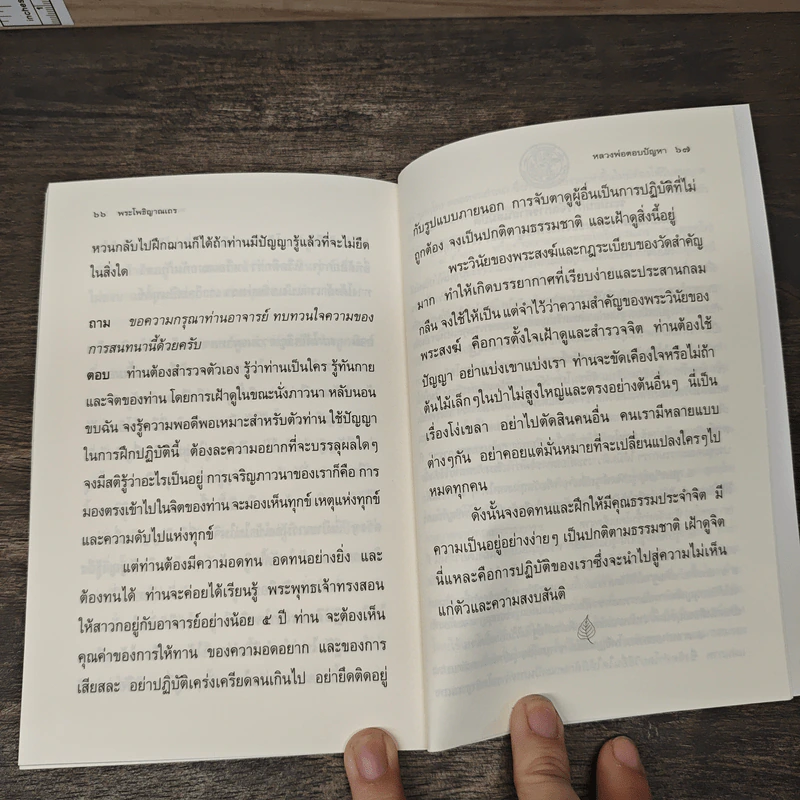 inches
๖๖ พระโพธิญาณเถร
หวนกลับไปฝึกฌานก็ได้ถ้าท่านมีปัญญารู้แล้วที่จะไม่ยึด
ในสิ่งใด
ถาม ขอความกรุณาท่านอาจารย์ ทบทวนใจความของ
การสนทนานี้ด้วยครับ
ตอบ ท่านต้องสำรวจตัวเอง รู้ว่าท่านเป็นใคร รู้ทันกาย
และจิตของท่าน โดยการเฝ้าดูในขณะนั่งภาวนา หลับนอน
ขบฉัน จงรู้ความพอดีพอเหมาะสำหรับตัวท่าน ใช้ปัญญา
ในการฝึกปฏิบัตินี้ ต้องละความอยากที่จะบรรลุผลใดๆ
จงมีสติรู้ว่าอะไรเป็นอยู่ การเจริญภาวนาของเราก็คือ การ
มองตรงเข้าไปในจิตของท่าน จะมองเห็นทุกข์ เหตุแห่งทุกข์
และความดับไปแห่งทุกข์
แต่ท่านต้องมีความอดทน อดทนอย่างยิ่ง และ
ต้องทนได้ ท่านจะค่อยได้เรียนรู้ พระพุทธเจ้าทรงสอน
ให้สาวกอยู่กับอาจารย์อย่างน้อย ๕ ปี ท่าน จะต้องเห็น
คุณค่าของการให้ทาน ของความอดอยาก และของการ
เสียสละ อย่าปฏิบัติเคร่งเครียดจนเกินไป อย่ายึดติดอยู่
หลวงพ่อตอบปัญหา ๖๗
กับรูปแบบภายนอก การจับตาดูผู้อื่นเป็นการปฏิบัติที่ไม่
ถูกต้อง จงเป็นปกติตามธรรมชาติ และเฝ้าดูสิ่งนี้อยู่
พระวินัยของพระสงฆ์และกฎระเบียบของวัดสำคัญ
มาก ทำให้เกิดบรรยากาศที่เรียบง่ายและประสานกลม
กลืน จงใช้ให้เป็น แต่จำไว้ว่าความสำคัญของพระวินัยของ
พระสงฆ์ คือการตั้งใจเฝ้าดูและสำรวจจิต ท่านต้องใช้
ปัญญา อย่าแบ่งเขาแบ่งเรา ท่านจะขัดเคืองใจหรือไม่ถ้า
ต้นไม้เล็กๆในป่าไม่สูงใหญ่และตรงอย่างต้นอื่นๆ นี่เป็น
เรื่องโง่เขลา อย่าไปตัดสินคนอื่น คนเรามีหลายแบบ
ต่างๆกัน อย่าคอยแต่มั่นหมายที่จะเปลี่ยนแปลงใครๆไป
หมดทุกคน
ดังนั้นจงอดทนและฝึกให้มีคุณธรรมประจำจิต มี
ความเป็นอยู่อย่างง่ายๆ เป็นปกติตามธรรมชาติ เฝ้าดูจิต
นี่แหละคือการปฏิบัติของเราซึ่งจะนำไปสู่ความไม่เห็น
แก่ตัวและความสงบสันติ